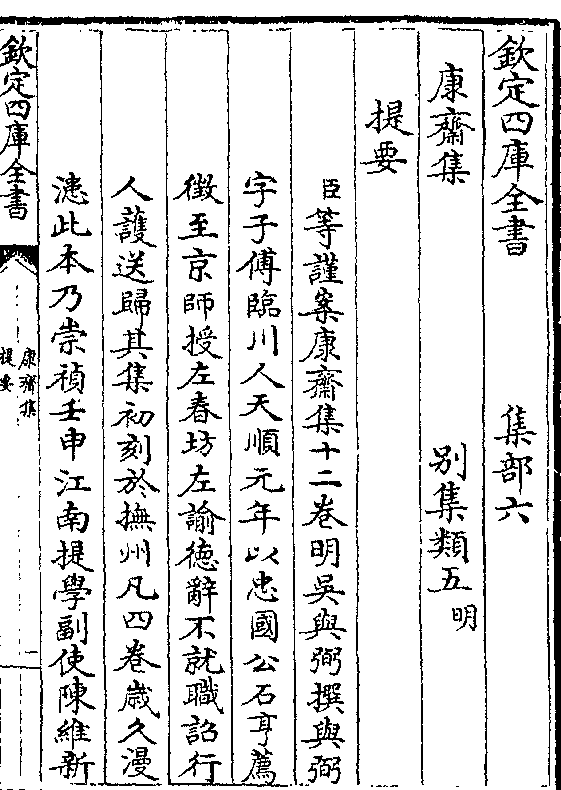 欽定四庫全書 集部六
康齋集 別集類五明
提要
臣等謹案康齋集十二卷明吳與弼撰與弼
字子傅臨川人天順元年以忠國公石亨薦
徵至京師授左春坊左諭德辭不就職詔行
人護送歸其集初刻於撫州凡四卷歲久漫
漶此本乃崇禎壬申江南提學副使陳維新
欽定四庫全書
康齋集
提要
一